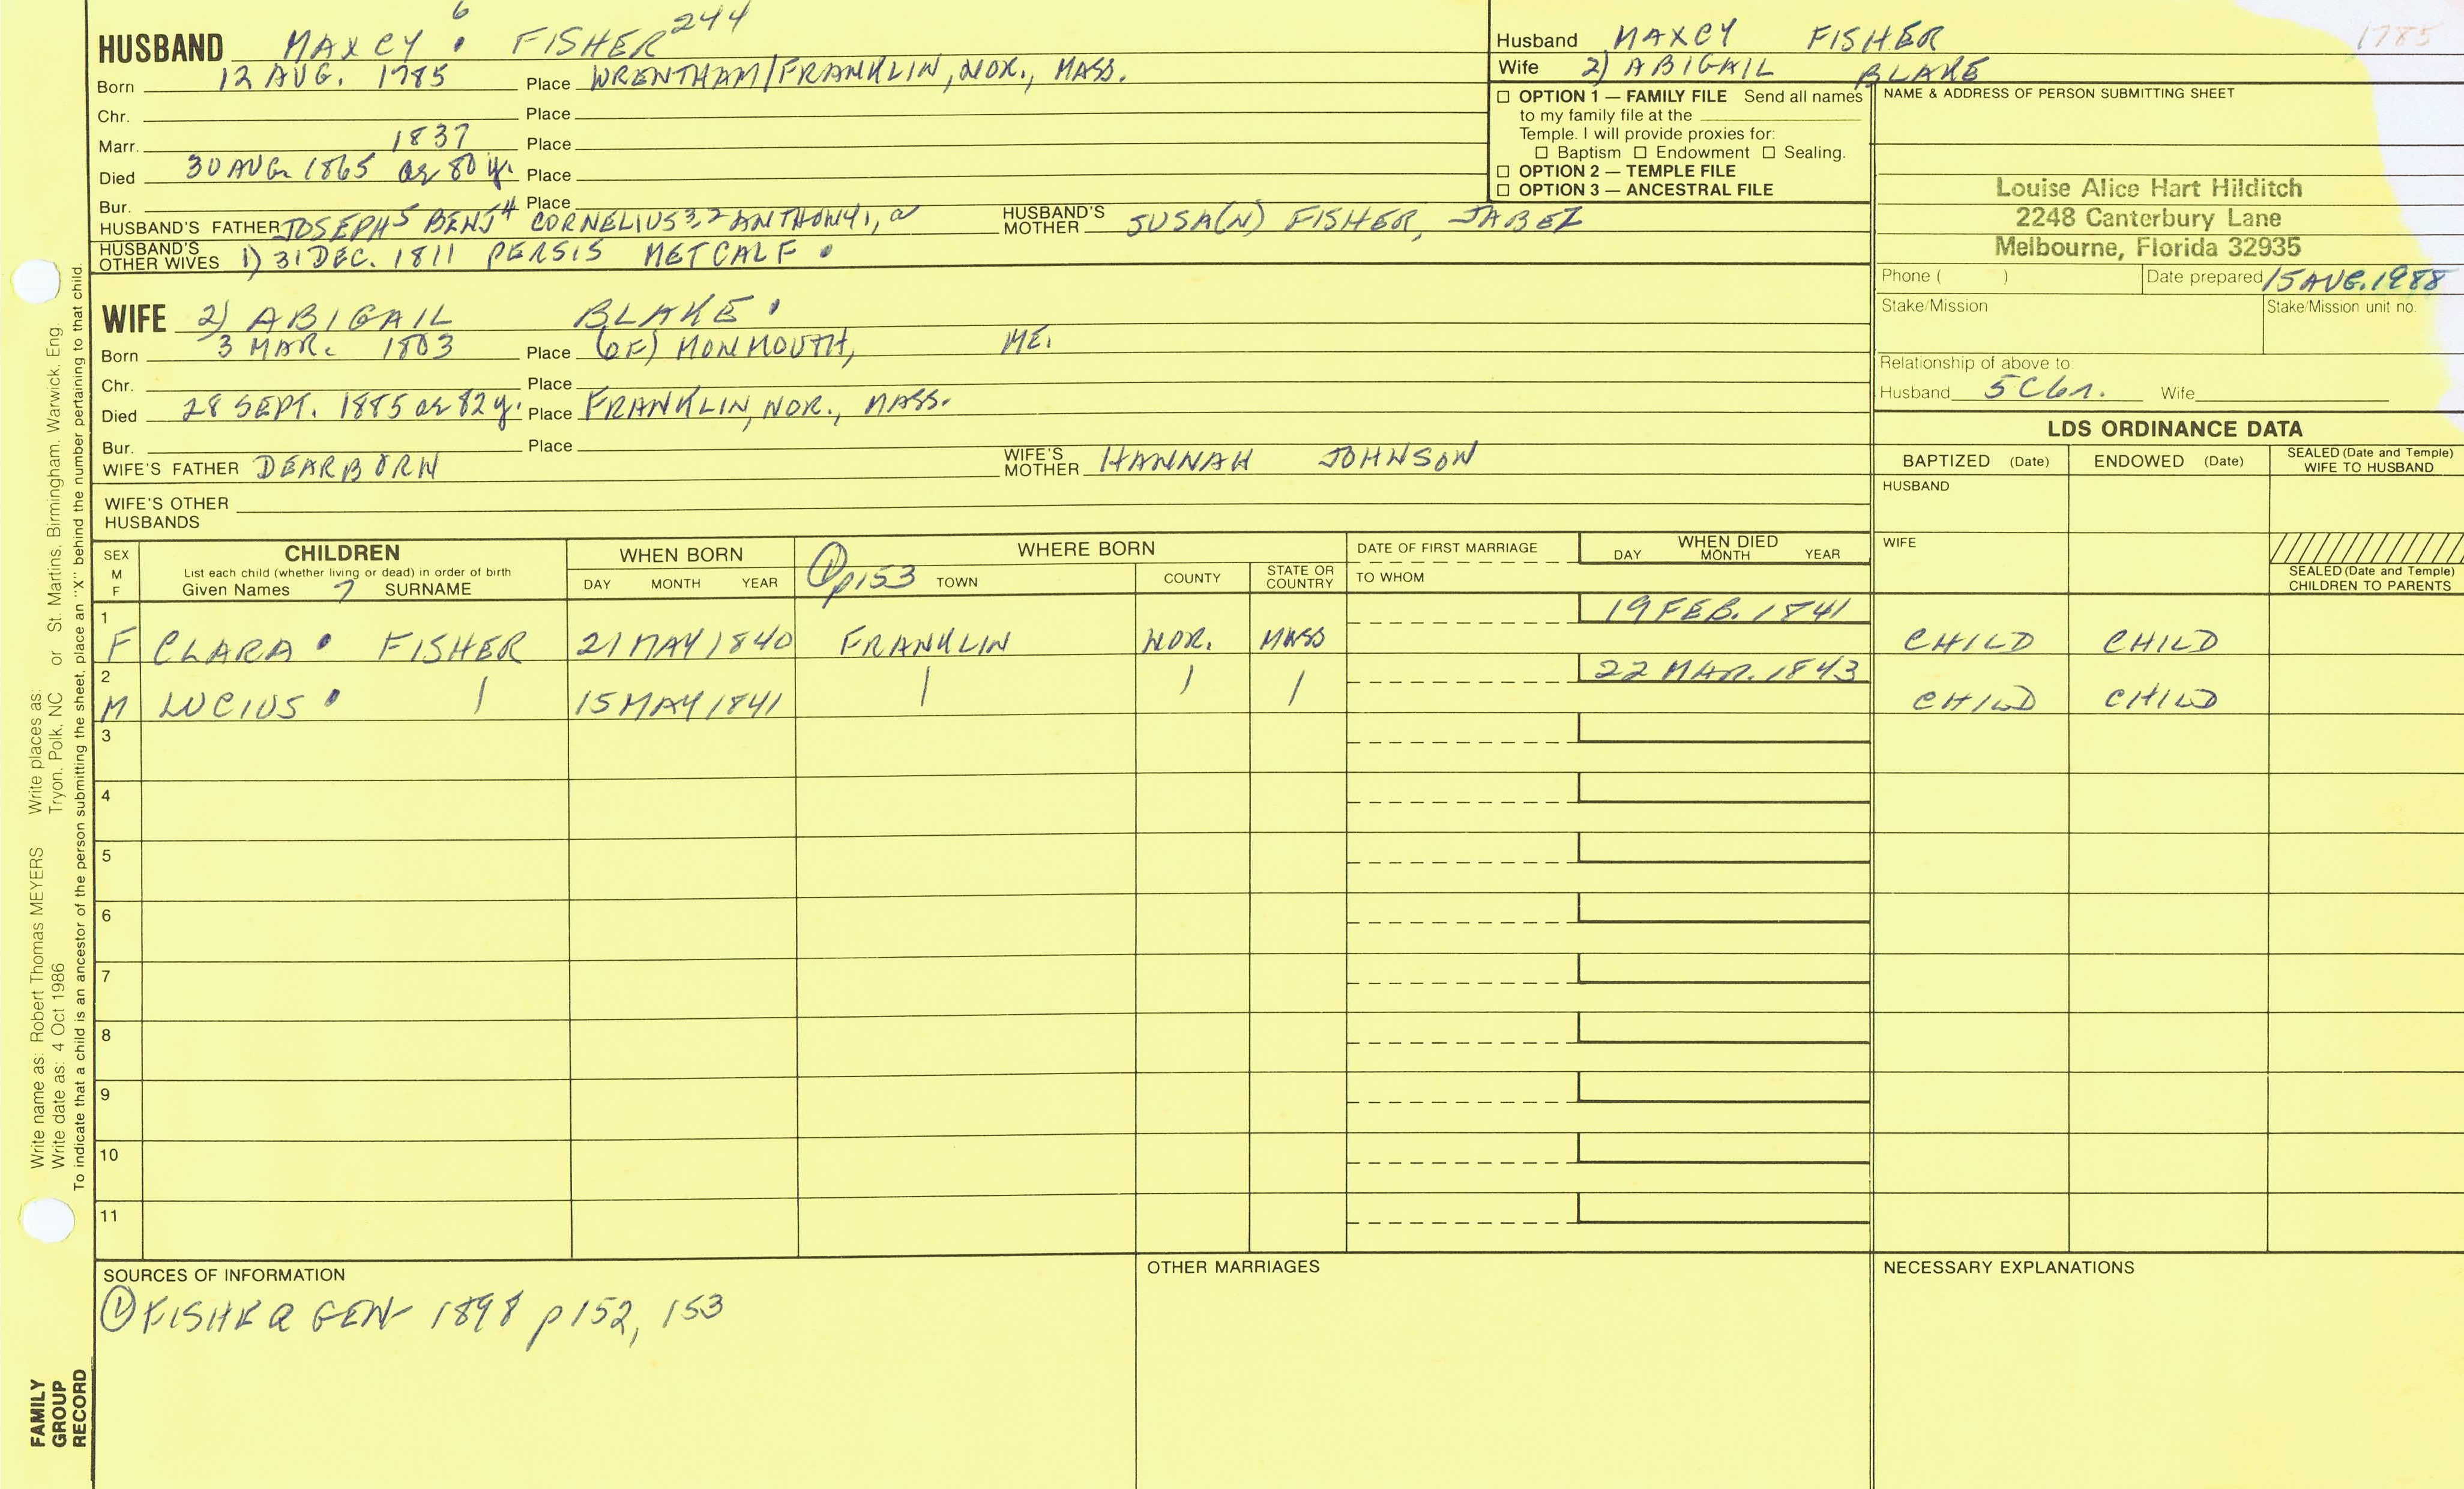 6
HUSBAND MAXCY FISHER 244
Born 12 AUG. 1785 Place WRENTHAM/FRANKLIN, NOR., MASS.
Chr. Place
Marr. 1837 Place
Died 30 AUG. 1865 ae 80 y. Place
Bur. Place
HUSBAND'S FATHER JOSEPH5 BENJ4 CORNELIUS3,2 ANTHONY1, a HUSBAND'S MOTHER SUSA(N) FISHER, JABEZ
HUSBAND'S OTHER WIVES 1) 31 DEC. 1811 PERSIS METCALF
WIFE 2) ABIGAIL BLAKE
Born 3 MAR. 1803 Place (OF) MONMOUTH, ME.
Chr. Place
Died 28 SEPT. 1885 ae 82 y. Place FRANKLIN, NOR., MASS.
Bur. Place
WIFE'S FATHER DEARBORN WIFE'S MOTHER HANNAH JOHNSON
WIFE'S OTHER HUSBANDS
Husband MAXCY FISHER 1785
Wife 2) ABIGAIL BLAKE
☐ OPTION 1 — FAMILY FILE Send all names
to my family file at the
Temple. I will provide proxies for:
☐ Baptism ☐ Endowment ☐ Sealing.
☐ OPTION 2 — TEMPLE FILE
☐ OPTION 3 — ANCESTRAL FILE
NAME & ADDRESS OF PERSON SUBMITTING SHEET
Louise Alice Hart Hilditch
2248 Canterbury Lane
Melbourne, Florida 32935
Phone ( ) Date prepared 15 AUG. 1988
Stake/Mission Stake/Mission unit no.
Relationship of above to:
Husband 5C6r. Wife
LDS ORDINANCE DATA
BAPTIZED (Date) ENDOWED (Date) SEALED (Date and Temple) WIFE TO HUSBAND
HUSBAND
WIFE
SEALED (Date and Temple) CHILDREN TO PARENTS
SEX M F
CHILDREN
List each child (whether living or dead) in order of birth
Given Names 7 SURNAME
WHEN BORN
DAY MONTH YEAR
① p153
WHERE BORN
TOWN COUNTY STATE OR COUNTRY
DATE OF FIRST MARRIAGE
TO WHOM
WHEN DIED
DAY MONTH YEAR
1 19 FEB. 1841
F CLARA FISHER 21 MAY 1840 FRANKLIN NOR. MASS CHILD CHILD
2 22 MAR. 1843
M LUCIUS | 15 MAY 1841 | | | CHILD CHILD
3
4
5
6
7
8
9
10
11
SOURCES OF INFORMATION
① FISHER GEN 1898 p152, 153
OTHER MARRIAGES
NECESSARY EXPLANATIONS
Write name as: Robert Thomas MEYERS Write places as:
Write date as: 4 Oct 1986 Tryon, Polk, NC or St. Martins, Birmingham, Warwick, Eng.
To indicate that a child is an ancestor of the person submitting the sheet, place an "X" behind the number pertaining to that child.
FAMILY
GROUP
RECORD